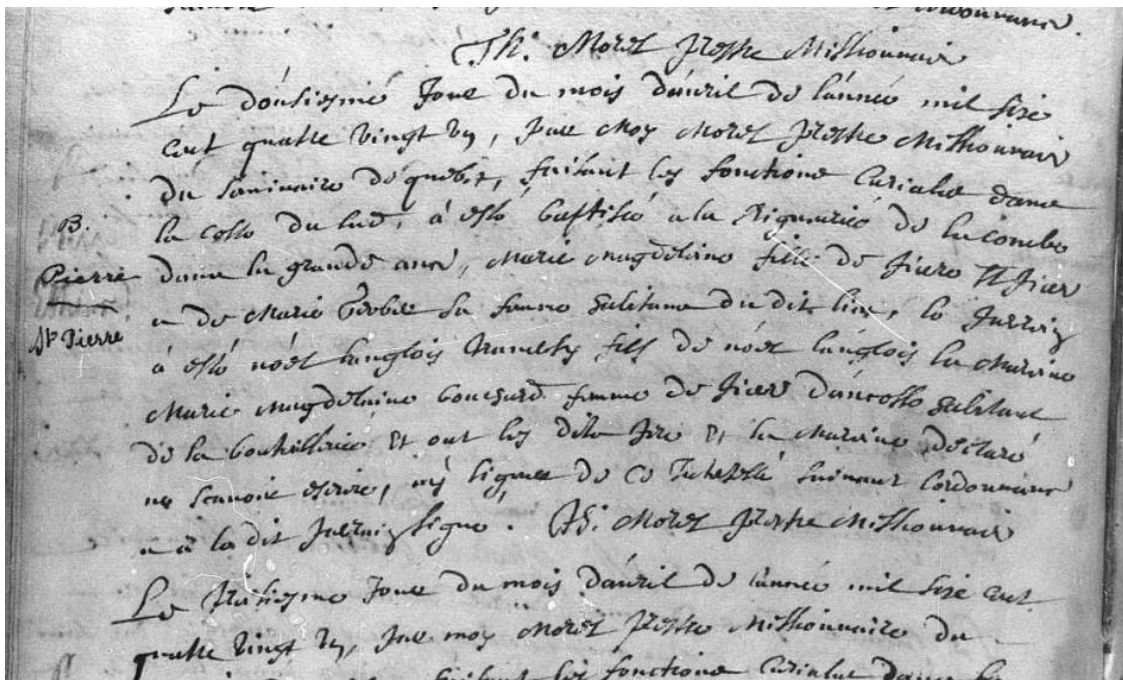 ordonnance.
Th. Morel prestre Missionnaire
Le dousiesme Jour du mois d'auril de l'année mil sixe
cent quatre vingt un, par Moy Morel prestre Missionnair
du Seminaire de quebec, faisant les fonctions Curiales dans
la coste du sud, à esté baptisée a la Signeurie de lacombe
dans la grande anse, Marie Magdelaine fille de piere St pier
de Marie sa femme habitans du dit lieu, le parrin
à esté nöel langlois fils de nöel langlois la Maraine
Marie Magdelaine femme de piere dancosse habitant
de la boutillerie et ont les dits pere et la Maraine déclaré
ne scauoir escrire, signer de ce suiuant l'ordonnance
à le dit parrain signé. Th. Morel prestre Missionnair
B.
Pierre
St Pierre
Le Jour du mois d'auril de l'année mil sixe cent
quatre vingt un, par moy Morel prestre Missionnaire du
faisant les fonctions Curiales dans la